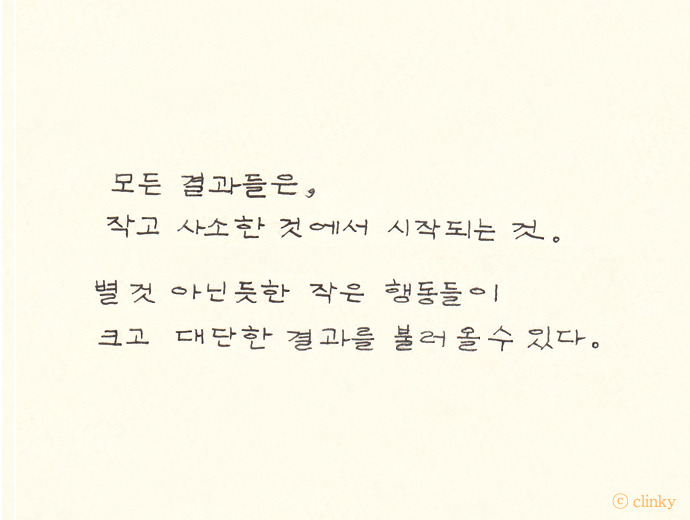 모든 결과들은,
작고 사소한 것에서 시작되는 것.
별것 아닌듯한 작은 행동들이
크고 대단한 결과를 불러올수 있다.
ⓒ clinky